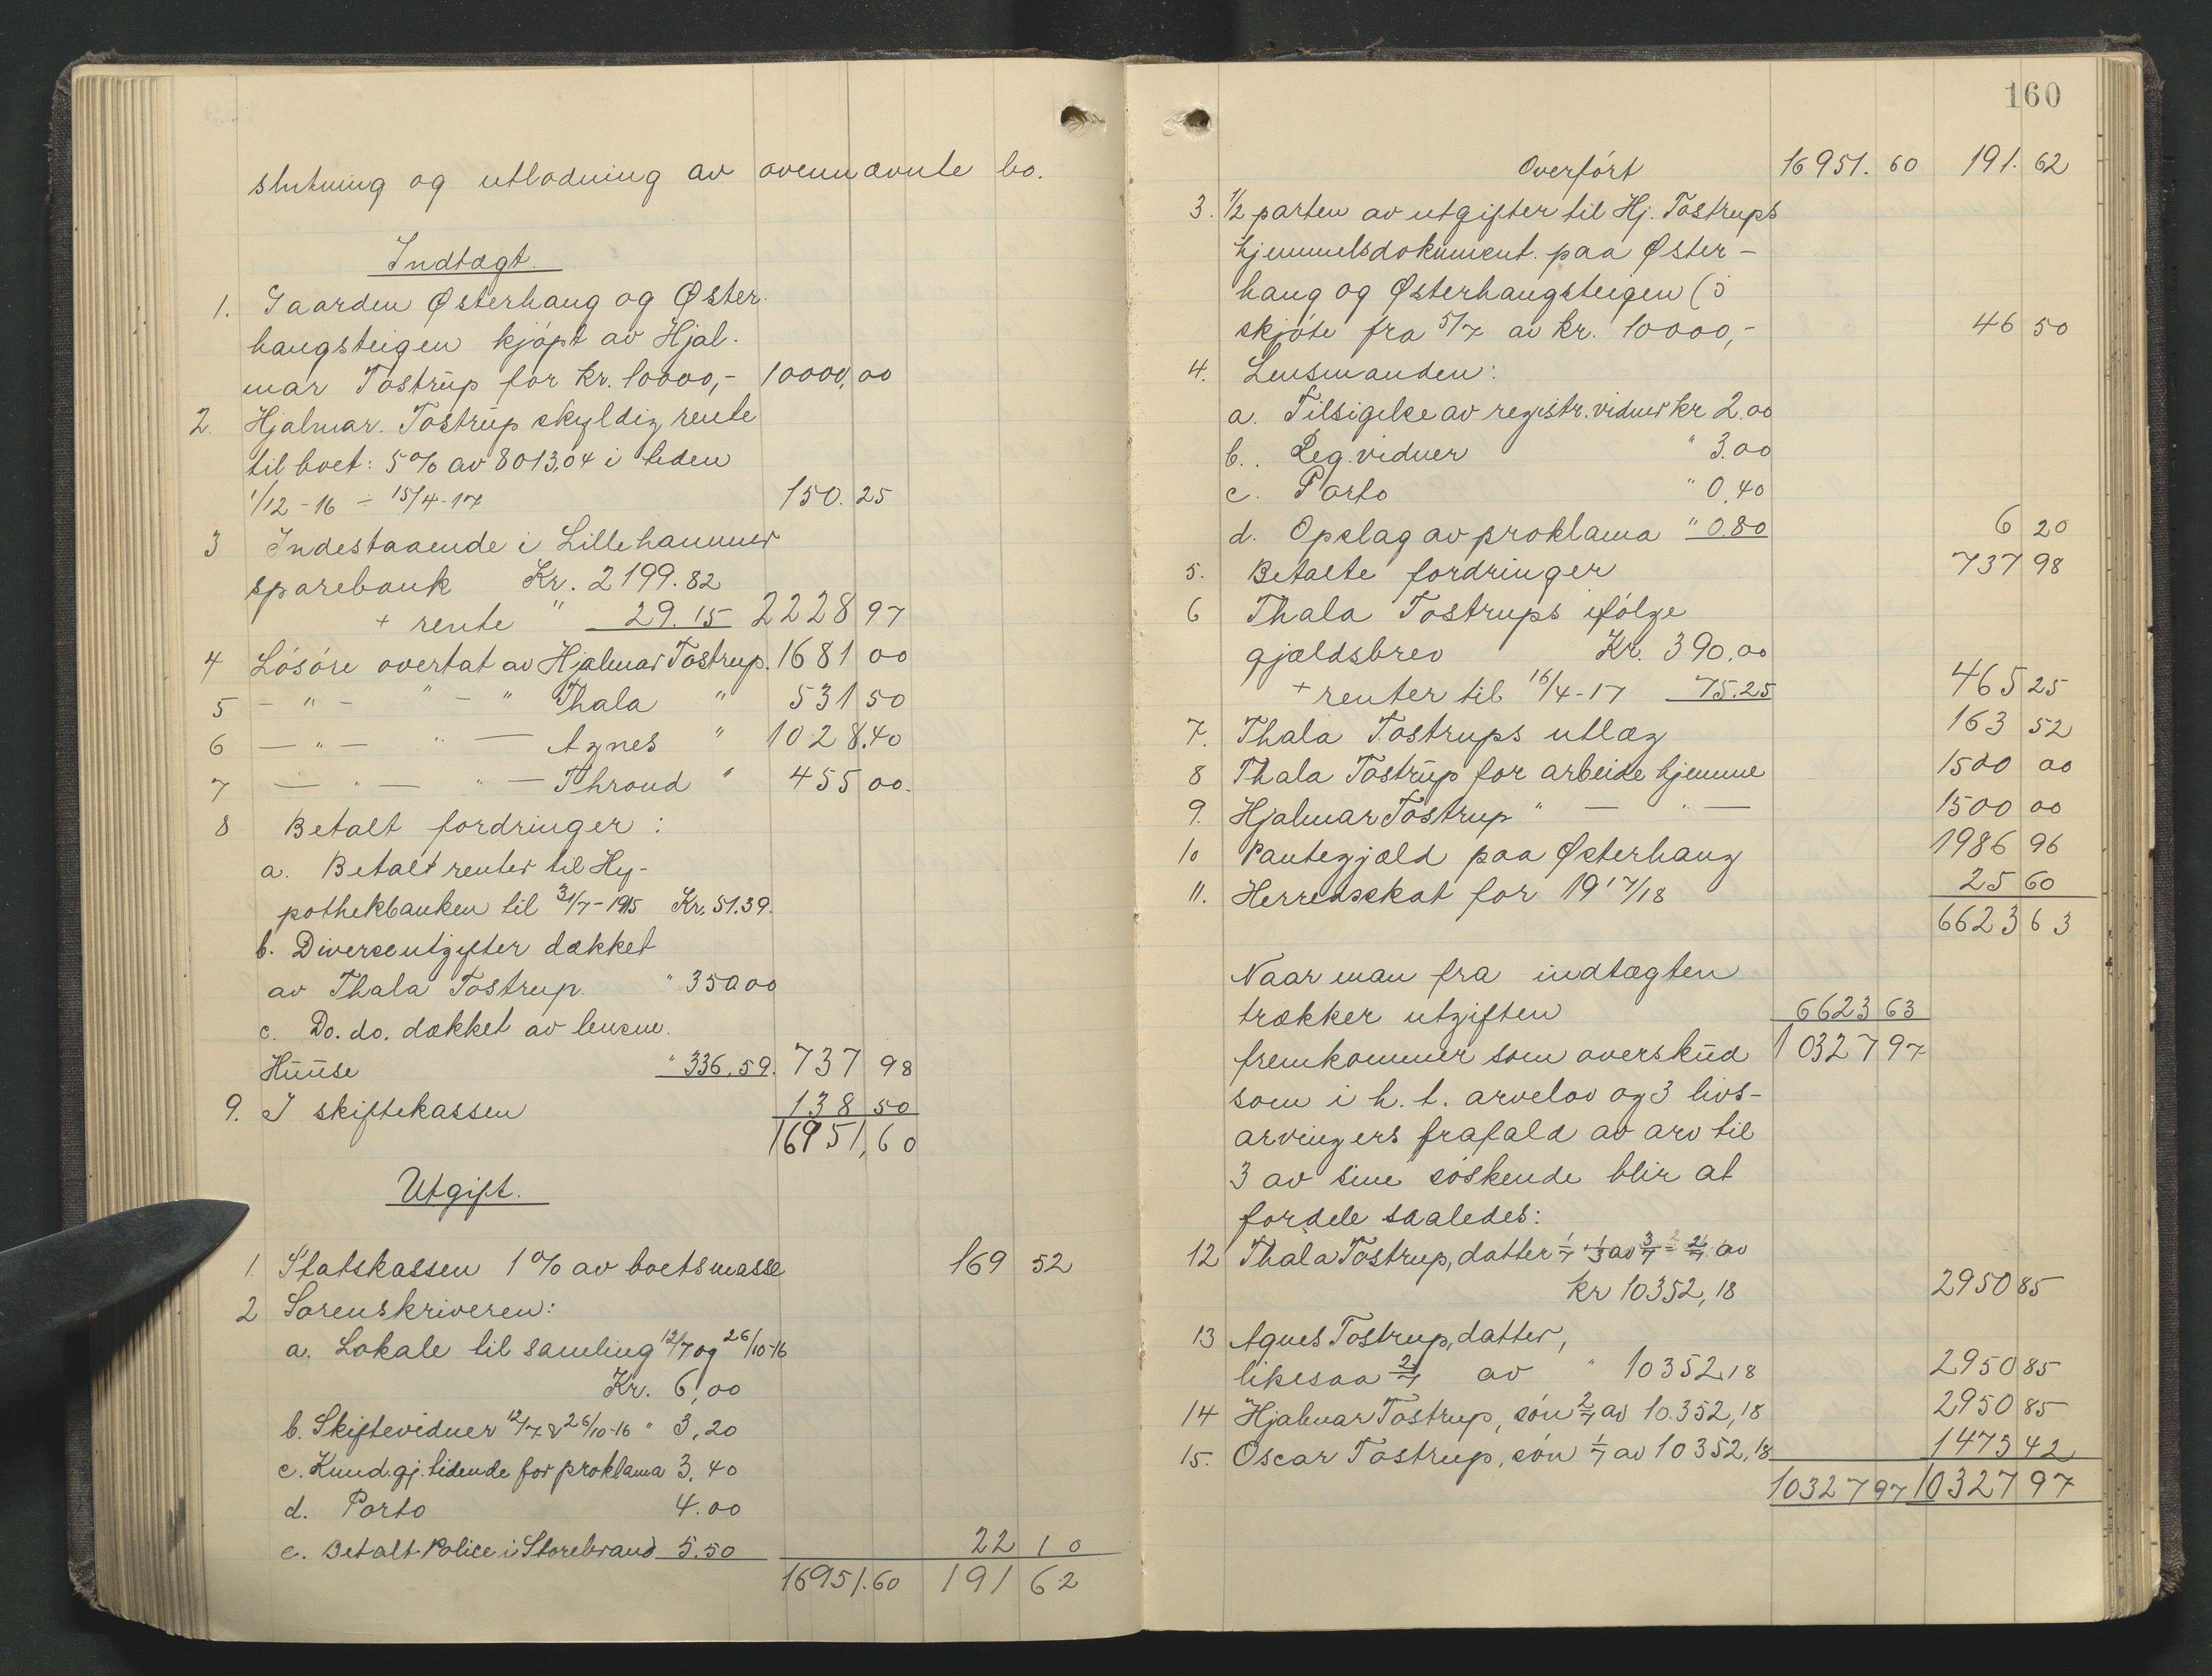 slutning og utlodning av ovennævnte bo.
Indtægt.
1. Gaarden Østerhaug og Øster-
haugsteigen kjøpt av Hjal-
mar Tostrup for kr. 10000,- 10000,00
2. Hjalmar Tostrup skyldig rente
til boet: 5% av 8013,04 i tiden
1/12-16 ÷ 15/4-17 150.25
3 Indestaaende i Lillehammer
sparebank Kr. 2199.82
+ rente " 29.15 2228 97
4 Løsøre overtat av Hjalmar Tostrup. 1681 00
5 - " - " - " Thala " 531 50
6 - " - " - Agnes " 1028.40
7 - " - " - Throud " 455 00.
8 Betalt fordringer:
a. Betalt renter til Hy-
pothekbanken til 31/7-1915 Kr. 51.39.
b. Diverse utgifter dækket
av Thala Tostrup. " 350.00
c. Do. do. dækket av lensm.
Huuse " 336.59. 737 98
9. I skiftekassen 138 50
16951,60
Utgift.
1. Statskassen 1% av boets masse 169 52
2 Sorenskriveren:
a. Lokale til samling 12/7 og 26/10-16
Kr. 6,00
b. Skiftevidner 12/7 & 26/10-16 " 3,20
c. Kund.gj. tidende for proklama 3.40
d. Porto 4.00
e. Betalt Police i Storebrand 5.50 22 10
16951.60 191 62
160
Overført 16951.60 191.62
3. 1/2 parten av utgifter til Hj. Tostrups
hjemmelsdokument paa Øster-
haug og Østerhaugsteigen (ɔ
skjøte fra 5/7 av kr. 10000,- 46 50
4. Lensmanden:
a. Tilsigelse av registr. vidner kr 2.00
b. Reg. vidner " 3.00
c. Porto " 0.40
d. Opslag av proklama " 0.80 6 20
5. Betalte fordringer 737 98
6 Thala Tostrups ifølge
gjældsbrev Kr. 390.00
+ renter til 16/4-17 75.25 465 25
7. Thala Tostrups utlæg 163 52
8 Thala Tostrup for arbeide hjemme 1500 00
9. Hjalmar Tostrup " - " - 1500 00
10 Pantegjæld paa Østerhaug 1986 96
11. Herredsskat for 1917/18 25 60
6623 63
Naar man fra indtægten
trækker utgiften 6623 63
fremkommer som overskud 10327 97
som i h. t. arvelov og 3 livs-
arvingers frafald av arv til
3 av sine søskende blir at
fordele saaledes:
12 Thala Tostrup, datter 1/7 + 1/3 av 3/7 = 2/7 av
kr 10352,18 2950 85
13 Agnes Tostrup, datter,
likesaa 2/7 av " 10352,18 2950 85
14 Hjalmar Tostrup, søn 2/7 av 10.352,18 2950 85
15. Oscar Tostrup, søn 1/7 av 10352,18 1475 42
10327 97 10327 97